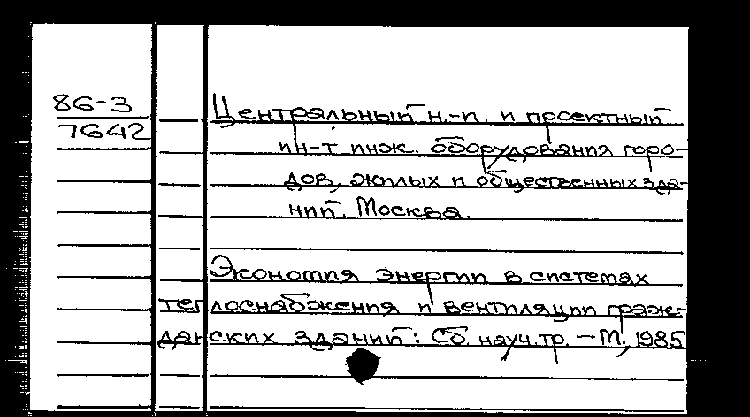 86-3
7642
Центральный н.-и. и проектный
ин-т инж. оборудования горо-
дов, жилых и общественных зда-
ний. Москва.
Экономия энергии в системах
теплоснабжения и вентиляции граж-
данских зданий: Сб. науч. тр. — М., 1985